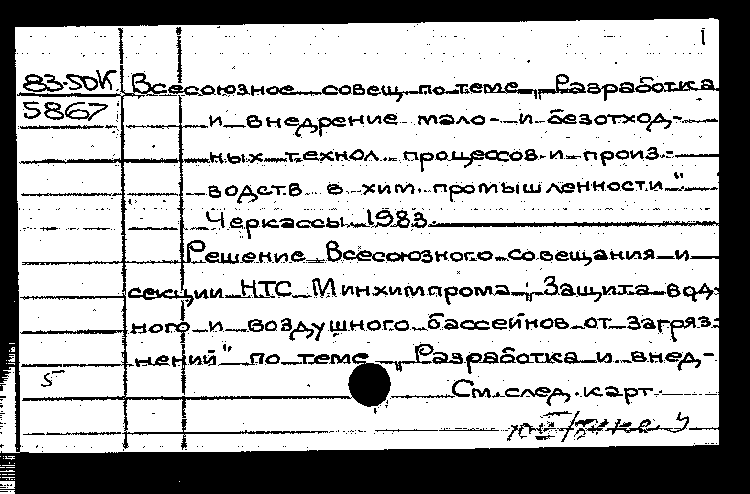 1
83-50К Всесоюзное совещ. по теме „Разработка
5867 и внедрение мало- и безотход-
ных технол. процессов и произ-
водств в хим. промышленности“
Черкассы 1983.
Решение Всесоюзного совещания и
секции НТС Минхимпрома „Защита вод-
ного и воздушного бассейнов от загряз-
нений“ по теме „Разработка и внед-
5 См. след. карт.